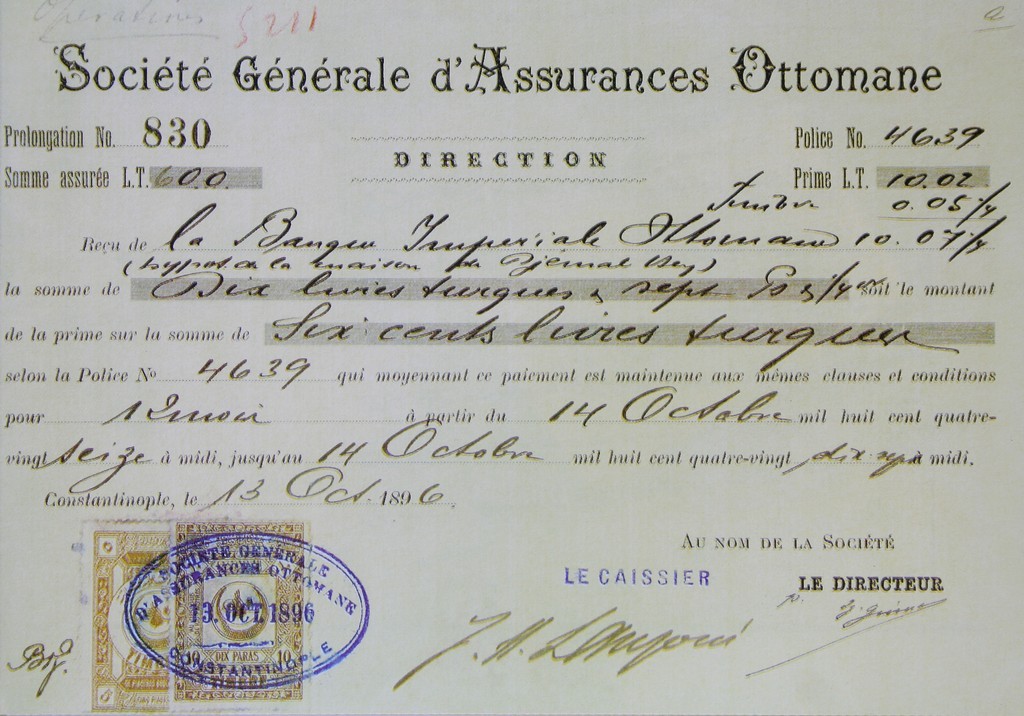 Operations 5211
Société Générale d'Assurances Ottomane
Prolongation No. 830
Police No. 4639
DIRECTION
Somme assurée L.T. 600.
Prime L.T. 10.02
Timbre 0.05 1/4
Reçu de la Banque Imperiale Ottomane 10.07 1/4
de la maison de Djémal Bey)
la somme de Dix livres turques & sept 1/4 soit le montant
de la prime sur la somme de Six cents livres turques
selon la Police No 4639 qui moyennant ce paiement est maintenue aux mêmes clauses et conditions
pour 12 mois à partir du 14 Octobre mil huit cent quatre-
vingt seize à midi, jusqu'au 14 Octobre mil huit cent quatre-vingt dix sept à midi.
Constantinople, le 13 Oct. 1896.
AU NOM DE LA SOCIÉTÉ
LE CAISSIER
LE DIRECTEUR
SOCIETE GENERALE
D'ASSURANCES OTTOMANE
13. OCT. 1896
CONSTANTINOPLE
10 DIX PARAS 10
TIMBRE